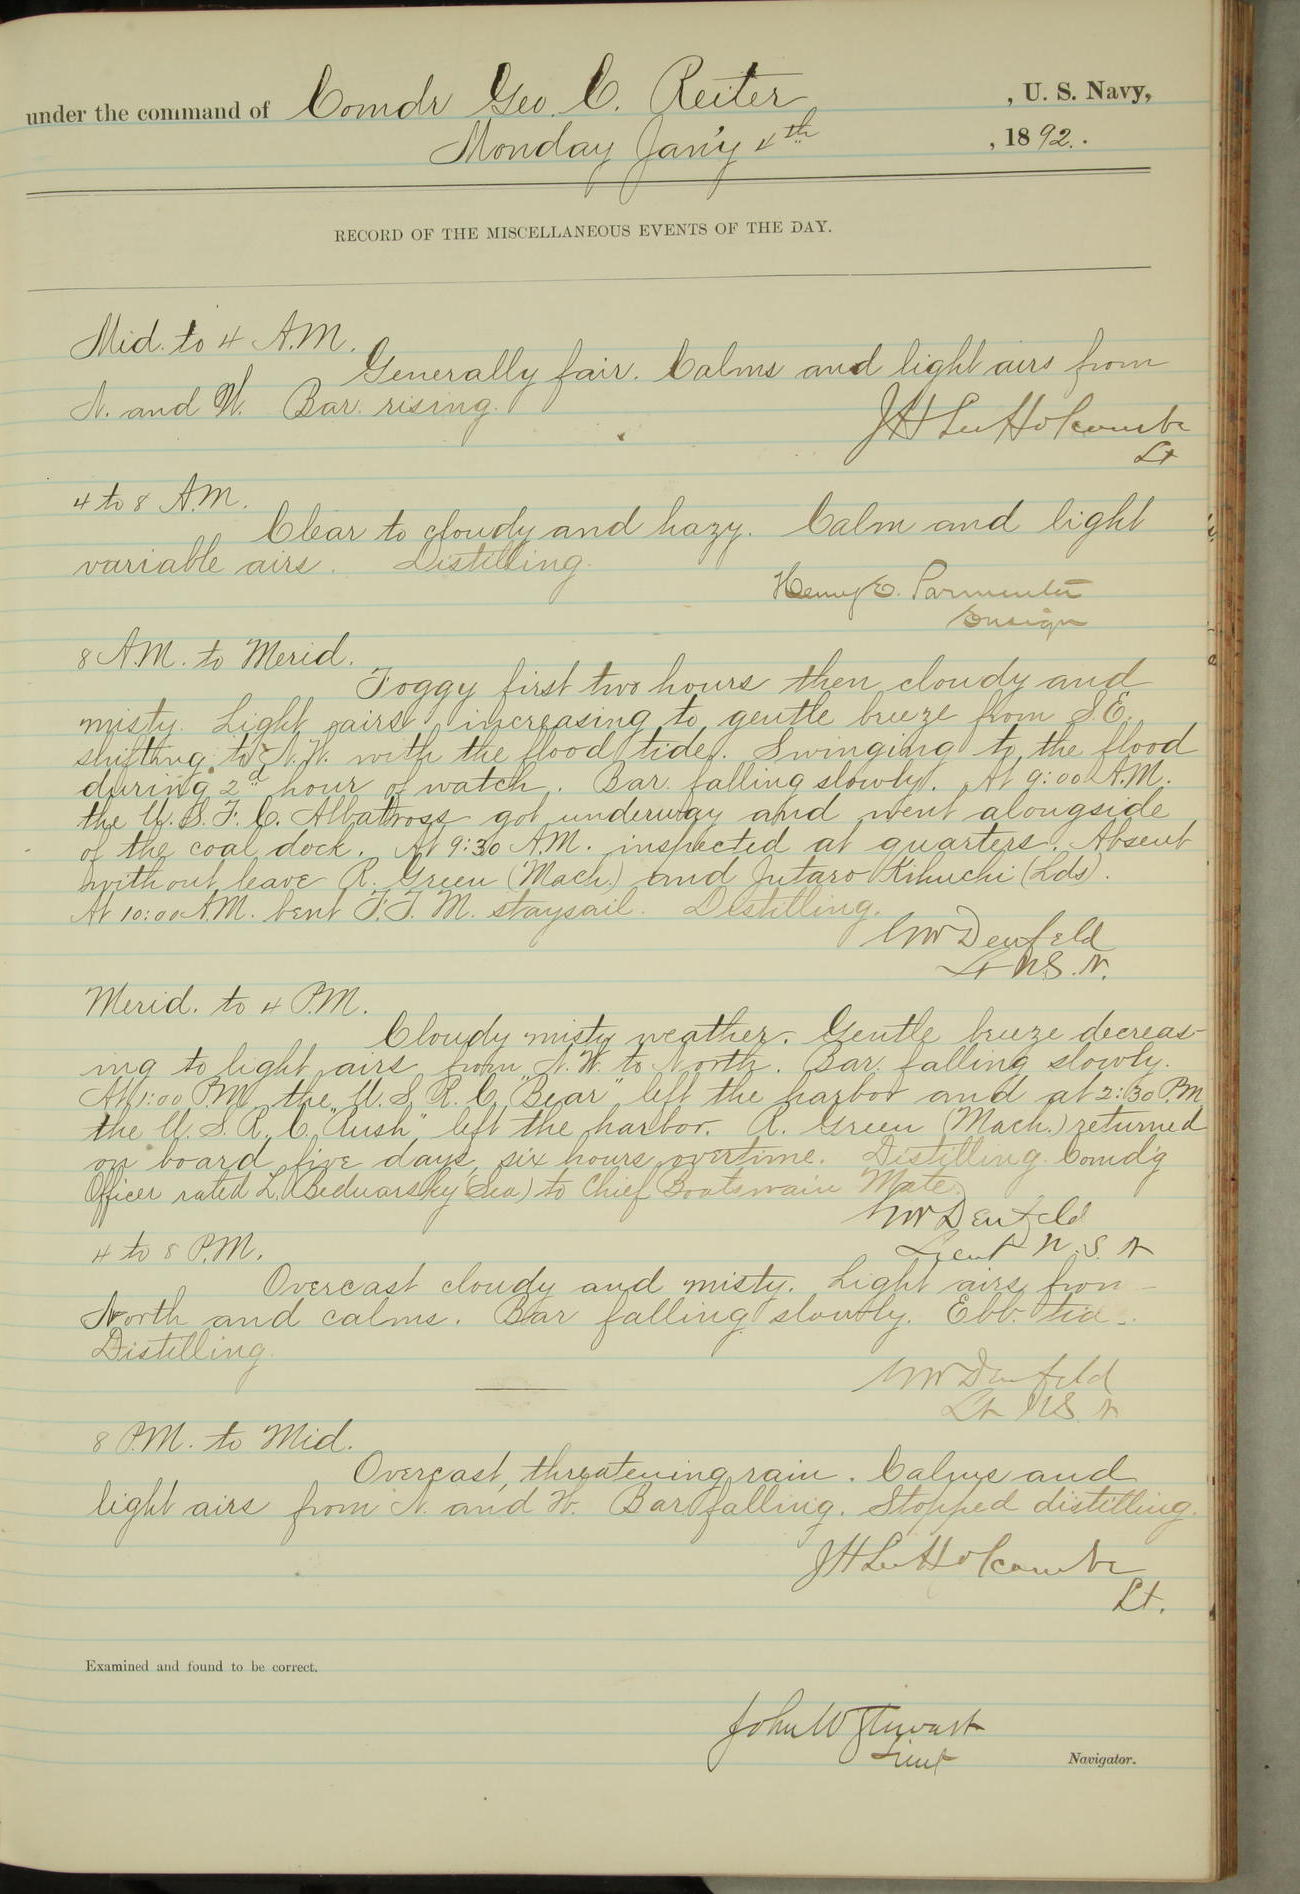 under the command of Comdr Geo. C. Reiter, U. S. Navy,
Monday Jan'y 4th, 1892.
RECORD OF THE MISCELLANEOUS EVENTS OF THE DAY.
Mid. to 4 A.M.
Generally fair. Calms and light airs from
N. and W. Bar. rising.
J H Lee Holcombe
Lt
4 to 8 A.M.
Clear to cloudy and hazy. Calm and light
variable airs. Distilling.
Henry E. Parmenter
Ensign
8 A.M. to Merid.
Foggy first two hours then cloudy and
misty. Light airs increasing to gentle breeze from S.E.
shifting to N.W. with the flood tide. Swinging to the flood
during 2d hour of watch. Bar. falling slowly. At 9:00 A.M.
the U.S.F.C. Albatross got underway and went alongside
of the coal dock. At 9:30 A.M. inspected at quarters. Absent
without leave R. Green (Mach.) and Jutaro Kikuchi (Lds).
At 10:00 A.M. bent F.T.M. staysail. Distilling.
Denfeld
Lt U.S.N.
Merid. to 4 P.M.
Cloudy misty weather. Gentle breeze decreas-
ing to light airs from N.W. to North. Bar. falling slowly.
At 1:00 P.M. the "U.S.R.C. Bear" left the harbor and at 2:30 P.M.
the U.S.R.C. "Rush" left the harbor. R. Green (Mach.) returned
on board five days, six hours overtime. Distilling. Comd'g
Officer rated L. Bednarsky (Sea) to Chief Boatswain Mate.
Denfeld
Lieut U.S.N
4 to 8 P.M.
Overcast cloudy and misty. Light airs from
North and calms. Bar falling slowly. Ebb. tide.
Distilling.
Denfeld
Lt U.S.N
8 P.M. to Mid.
Overcast, threatening rain. Calms and
light airs from N. and W. Bar falling. Stopped distilling.
J H Lee Holcombe
Lt.
Examined and found to be correct.
John W Stewart
Lieut
Navigator.